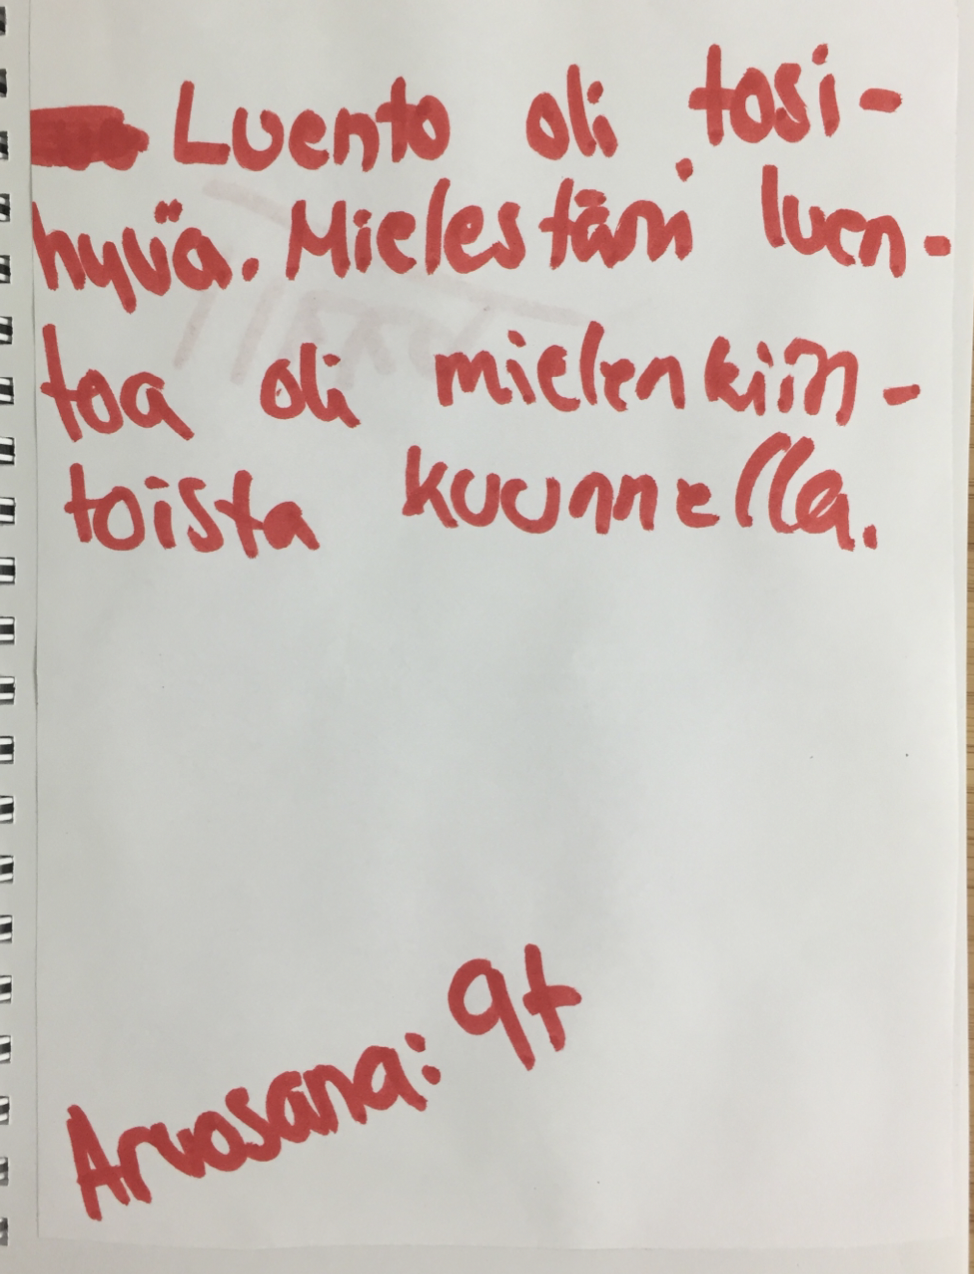 Luento oli tosi-
hyvä. Mielestäni luen-
toa oli mielenkiin-
toista kuunnella.
Arvosana: 9+